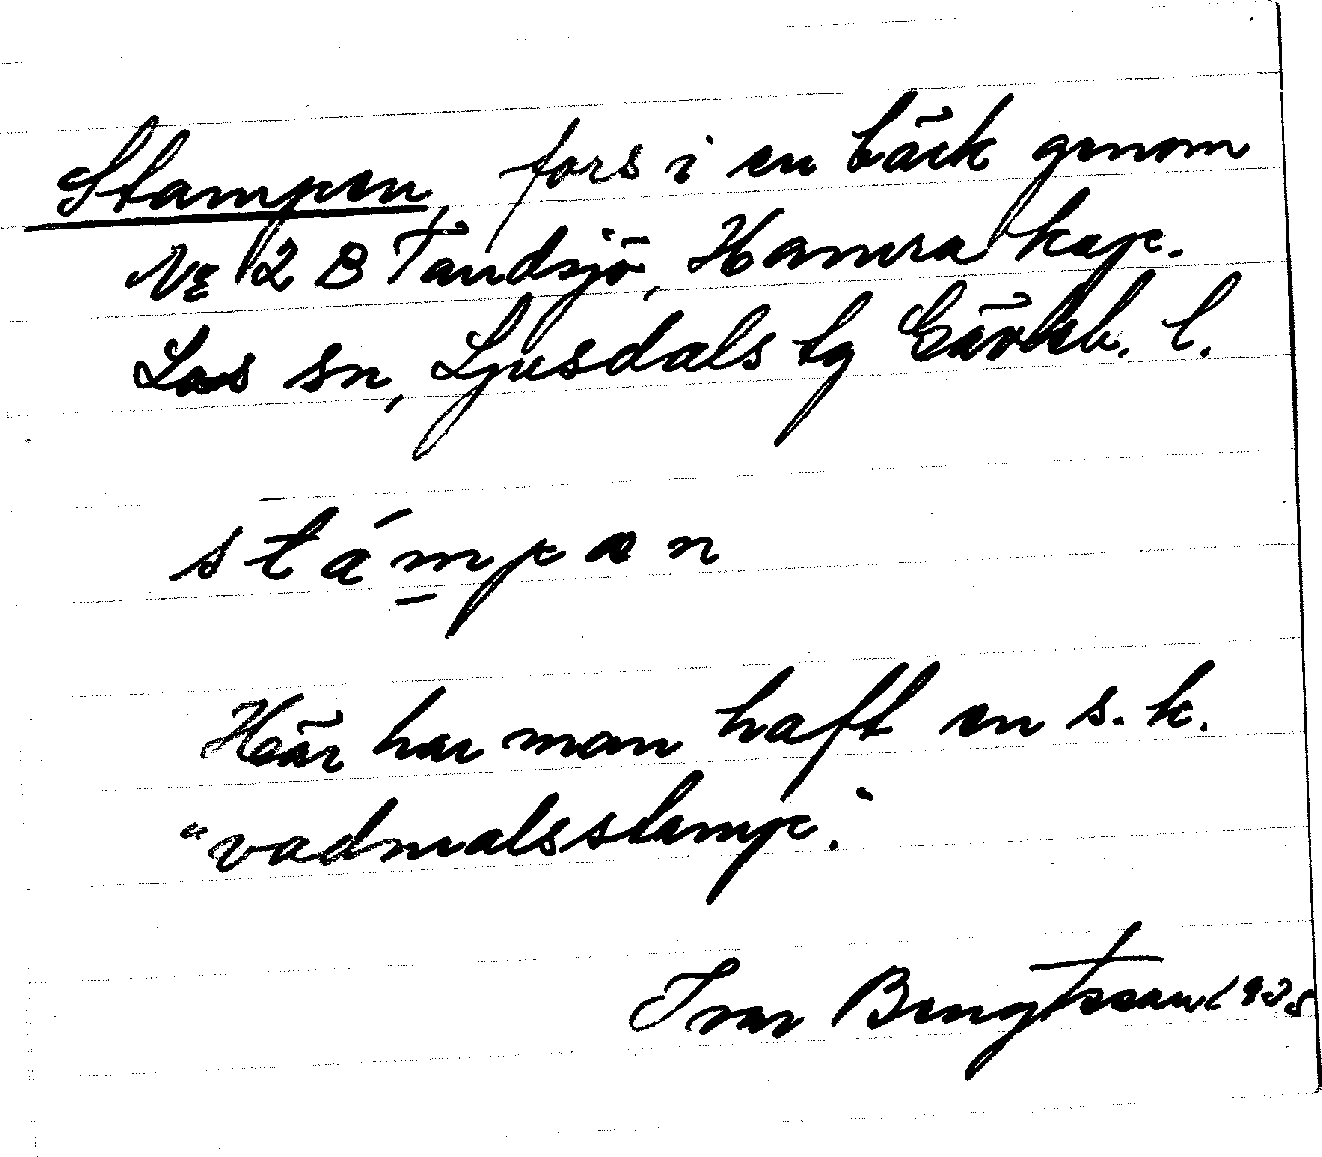 Stampen, fors i en bäck genom
№ 2 B Tandsjö, Hamra kap.
Los sn, Ljusdals tg Gävleb. l.
stámpan
Här har man haft en s.k.
"vadmalsstamp".
Ivar Bengtsson 1935